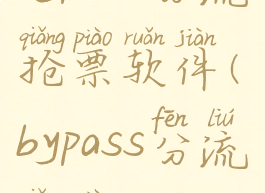 qiǎng piào ruǎn jiàn
抢票软件(
fēn liú
bypass分流